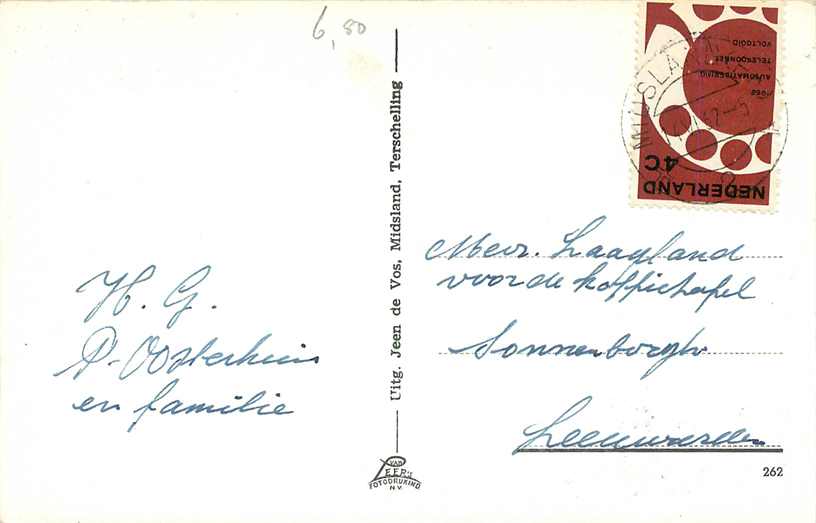 6,80
H. G.
P. Oosterhuis
en familie
Uitg. Jeen de Vos, Midsland, Terschelling
VAN
LEER'S
FOTODRUKIND
N.V.
1962
AUTOMATISERING
TELEFOONNET
VOLTOOID
4C
NEDERLAND
MIDSLAND
Mevr. Haagland
voor de koffietafel
Sonnenborgh
Leeuwarden
262